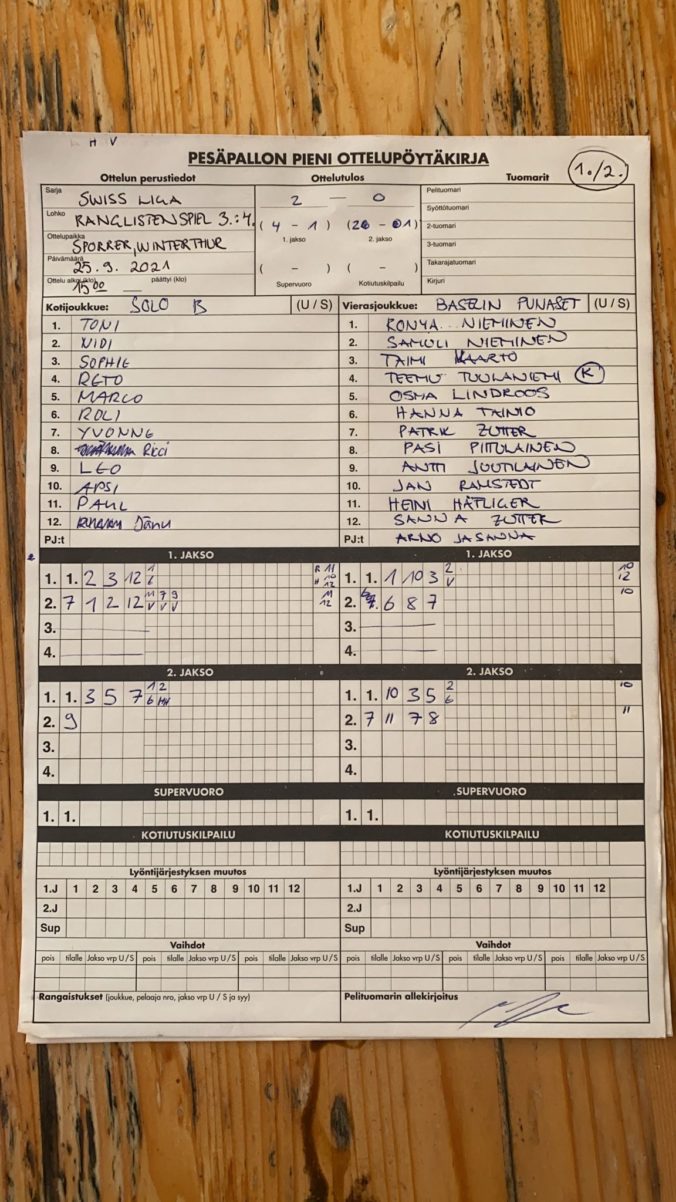 H V
PESÄPALLON PIENI OTTELUPÖYTÄKIRJA
1./2.
Ottelun perustiedot Ottelutulos Tuomarit
Sarja SWISS LIGA 2 — 0 Pelituomari
Lohko RANGLISTENSPIEL 3.:4. (4 - 1) Syöttötuomari
Ottelupaikka SPORRER, WINTERTHUR 1. jakso 2. jakso 2-tuomari
Päivämäärä 25.9.2021 ( - ) ( - ) 3-tuomari
Takarajatuomari
Ottelu alkoi (klo) 15 00 päättyi (klo) Supervuoro Kotiutuskilpailu Kirjuri
Kotijoukkue: SOLO B (U / S) Vierasjoukkue: BASELIN PUNASET (U / S)
1. TONI 1. RONYA NIEMINEN
2. VIDI 2. SAMULI NIEMINEN
3. SOPHIE 3. TAIMI KAARTO
4. RETO 4. TEEMU TUULANIEMI K
5. MARCO 5. OSMA LINDROOS
6. ROLI 6. HANNA TAINIO
7. YVONNE 7. PATRIK ZUTTER
8. Ricci 8. PASI PITULAINEN
9. LEO 9. ANTTI JUUTILAINEN
10. APSI 10. JAN RAMSTEDT
11. PAUL 11. HEINI HÄTLIGER
12. Jänu 12. SANNA ZUTTER
PJ:t PJ:t ARNO JA SANNA
1. JAKSO 1. JAKSO
1. 1. 2 3 12 1. 1. 1 10 3 2 V 10 12
2. 7 1 2 12 11 V 7 V 9 V 11 12 2. 6 8 7 10
3. 3.
4. 4.
2. JAKSO 2. JAKSO
1. 1. 3 5 7 1 2 6 1. 1. 10 3 5 2 6 10
2. 9 2. 7 11 7 8 11
3. 3.
4. 4.
SUPERVUORO SUPERVUORO
1. 1. 1. 1.
KOTIUTUSKILPAILU KOTIUTUSKILPAILU
Lyöntijärjestyksen muutos Lyöntijärjestyksen muutos
1.J 1 2 3 4 5 6 7 8 9 10 11 12 1.J 1 2 3 4 5 6 7 8 9 10 11 12
2.J 2.J
Sup Sup
Vaihdot Vaihdot
pois tilalle Jakso vrp U / S pois tilalle Jakso vrp U / S pois tilalle Jakso vrp U / S pois tilalle Jakso vrp U / S pois tilalle Jakso vrp U / S pois tilalle Jakso vrp U / S
Rangaistukset (joukkue, pelaaja nro, jakso vrp U / S ja syy) Pelituomarin allekirjoitus